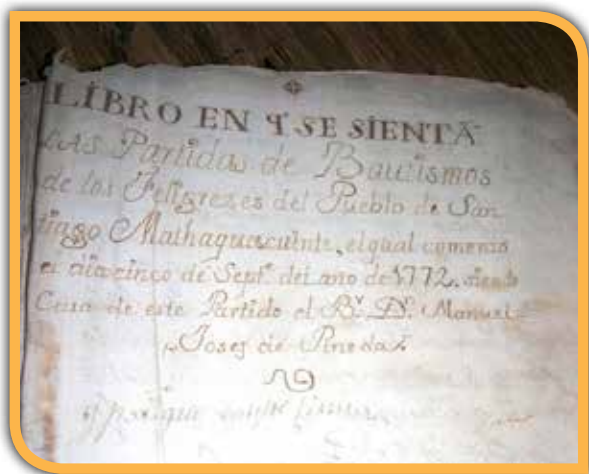 LIBRO EN q̃ SE SIENTÃ
LAS Partidas de Bautismos
de los Feligreses del Pueblo de San
tiago Mathaquacuinte, el qual comenso
el dia cinco de Septe. del ano de 1772. siendo
Cura de este Partido el Br. Dn. Manuel
Josef de Pineda.